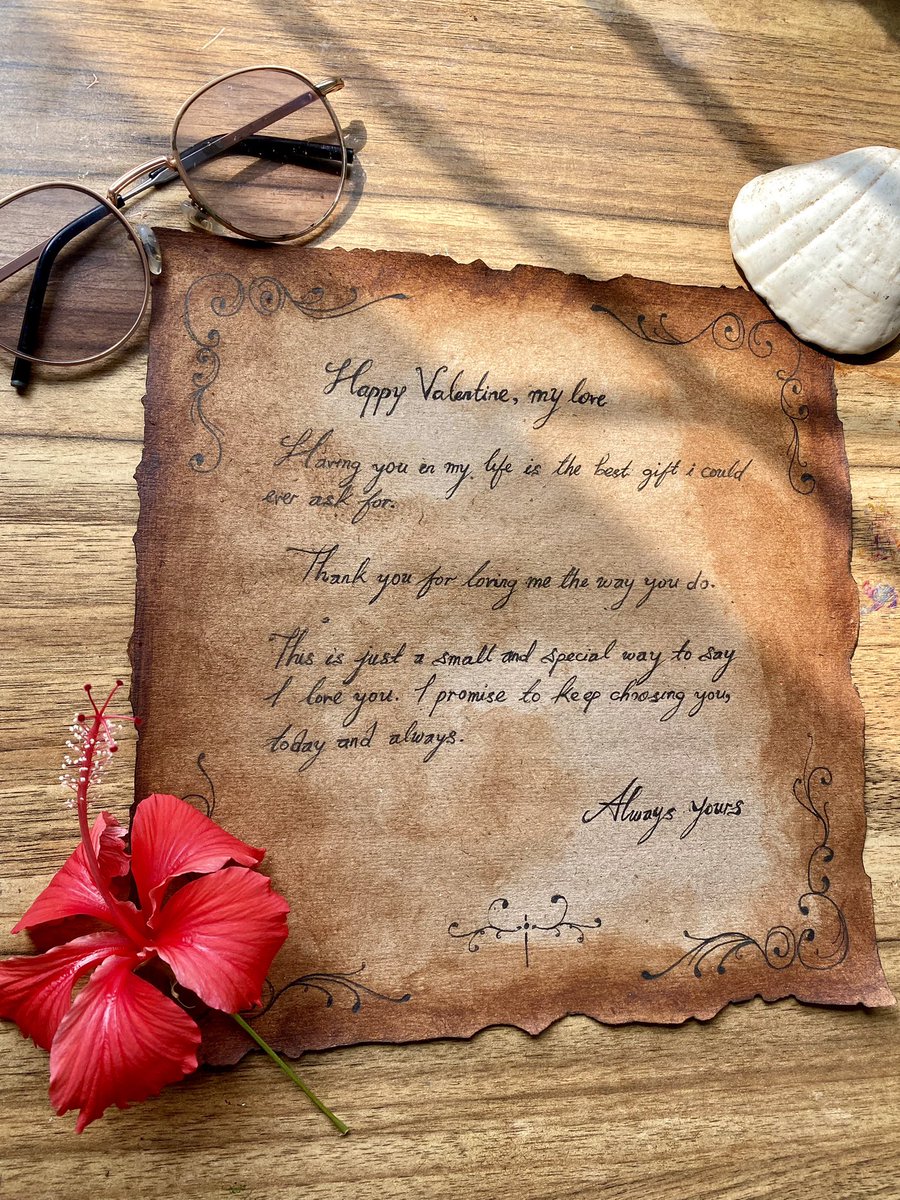 Happy Valentine, my love
Having you en my life is the best gift i could
ever ask for.
Thank you for loving me the way you do.
This is just a small and special way to say
I love you. I promise to keep choosing you,
today and always.
Always yours